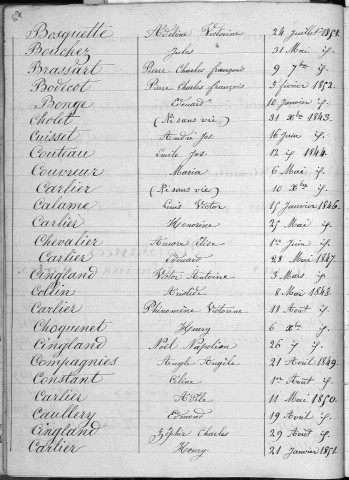 Bosquette Adéline Victorine 24 Juillet 1851.
Boitchez Jules 31 Mai if.
Brassart Pierre Charles françois 9 7bre if.
Bodecot Pierre Charles françois 3 février 1852.
Bonge Edouard 10 Janvier if.
Cholet (Né sans vie) 31 Xbre 1843.
Cuisset André Jos. 16 Juin if.
Couteau Emile Jos. 12 if 1844.
Couvreur Maria 6 Mai if.
Carlier (Né sans vie) 10 Xbre if.
Calame Louis Victor 15 Janvier 1846.
Carlier Honorine 25 Mai if.
Chevalier Aurore Elise 1er Juin if.
Carlier Edouard 28 Mai 1847.
Cingland Victor Antoine 3 Mars if.
Collin Aristide 8 Mai 1848.
Carlier Philomène Victorine 18 Août if.
Choquenet Henry 6 Xbre if.
Cingland Noël Napoléon 26 if if.
Compagnies Angle Angèle 21 Août 1849.
Constant Céline 1er Août if.
Carlier Adèle 11 Mai 1850.
Caullery Edmond 19 Avril if.
Cingland Zéphir Charles 29 Août if.
Carlier Henry 21 Janvier 1851.